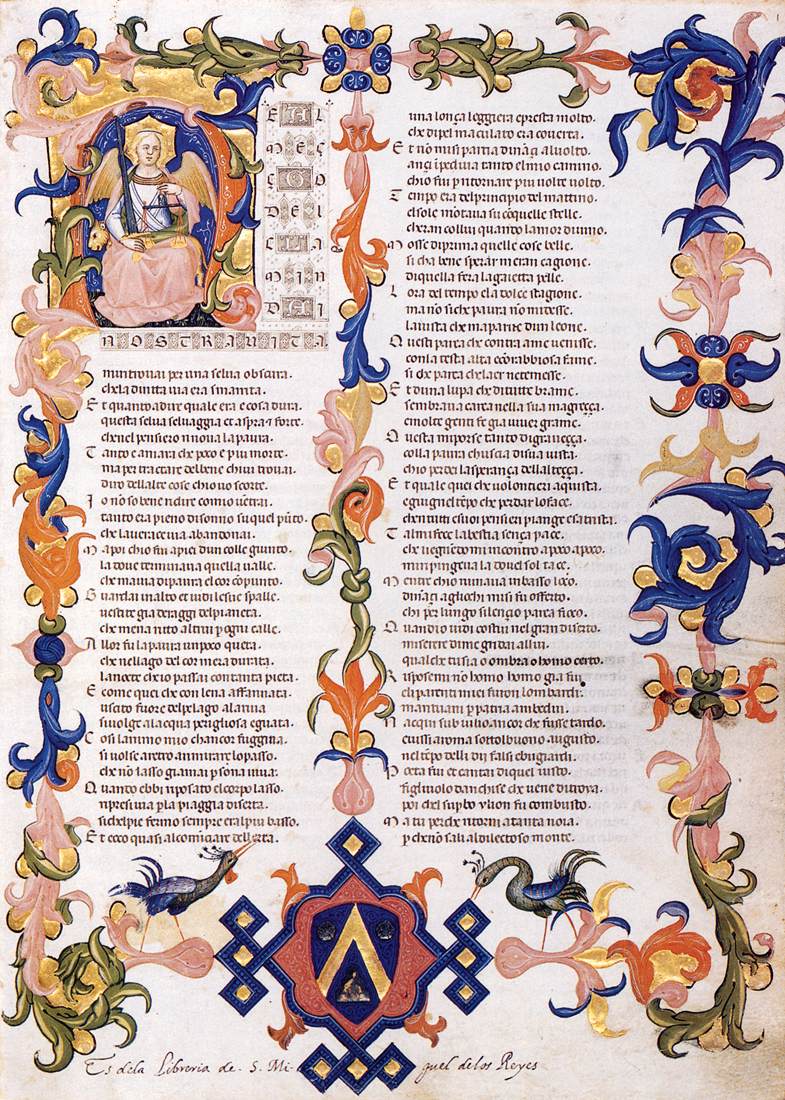 NEL
MEÇ
ÇO
DEL
CA
MIN
DI
NOSTRA VITA
mi ritrouai per una selua obscura.
che la diritta uia era smarrita.
Et quanto a dire quale era e cosa dura.
questa selua seluaggia et aspra forte.
che nel pensiero rinoua la paura.
Tanto e amara che poco e piu morte.
ma per tractare del bene chiui trouai.
diro dellaltre cose chio uo scorte.
Io nõ so bene ridire comio uẽtrai.
tanto era pieno di sonno su quel pũto.
che la uerace uia abandonai.
Ma poi chio fui apie dun colle giunto.
la doue terminaua quella ualle.
che mauia di paura el cor cõpunto.
Guardai inalto et uidi le sue spalle.
uestite gia de raggi del pianeta.
che mena ritto altrui ꝑ ogni calle.
Allor fu la paura un poco queta.
che nellago del cor mera durata.
la nocte chio passai con tanta pieta.
E come quei che con lena affannata.
uscito fuore del pelago alla riua
si uolge alacqua perigliosa e guata.
Cosi lanimo mio chancor fuggiua.
si uolse aretro a mirare lo passo.
che nõ lasso giamai ꝑsona uiua.
Quanto ebbi riposato el corpo lasso.
ripresi uia ꝑ la piaggia diserta.
si chel pie fermo sempre era l piu basso.
Et ecco quasi al comĩciare dellerta.
una lonça leggiera e presta molto.
che di pel maculato era couerta.
Et nõ mi si partia dinãçi al uolto.
ançi ĩpediua tanto el mio camino.
chio fui ꝑ ritornare piu uolte uolto.
Tempo era del principio del mattino.
el sole mõtaua su cõ quelle stelle.
cheran collui quanto lamor diuino.
Mosse di prima quelle cose belle.
si cha bene sperar meran cagione.
di quella fera la gaietta pelle.
Lora del tempo e la dolce stagione.
ma nõ si che paura nõ mi desse.
la uista che mi parue dun leone.
Questi parea che contra me uenisse.
con la testa alta e cõ rabbiosa fame.
si che parea che laer ne temesse.
Et duna lupa che di tutte brame.
sembraua carca nella sua magreçça.
e molte genti fe gia uiuer grame.
Questa mi porse tanto di graueçça.
colla paura chuscia di sua uista.
chio perdei la sperança dellalteçça.
Et quale quei che uolontieri aqista.
e giugnel tẽpo che perdar lo face.
che n tutti e suoi pensier piange e satrista.
Tal mi fece la bestia sença pace.
che uegnẽdomi incontro a poco a poco.
mi ripingeua la doue l sol tace.
Mentre chio ruinaua in basso loco.
dinãçi agliochi mi si fu offerto.
chi per lungo silençio parea fioco.
Quandio uidi costui nel gran diserto.
miserere di me gridai allui.
qual che tu sia o ombra o homo certo.
Rispose mi nõ homo homo gia fui.
e li parenti miei furon lombardi.
mantuani per patria ambedui.
Nacqui sub iulio ancor che fusse tardo.
e uissi a roma sottol buono augusto.
nel tẽpo delli dii falsi e bugiardi.
Poeta fui et cantai di quel iusto.
figliuolo danchise che uene di troya.
poi chel supbo ylion fu combusto.
Ma tu perche ritorni a tanta noia.
ꝑche nõ sali al dilectoso monte.
Es dela Libreria de. S. Mi guel delos Reyes